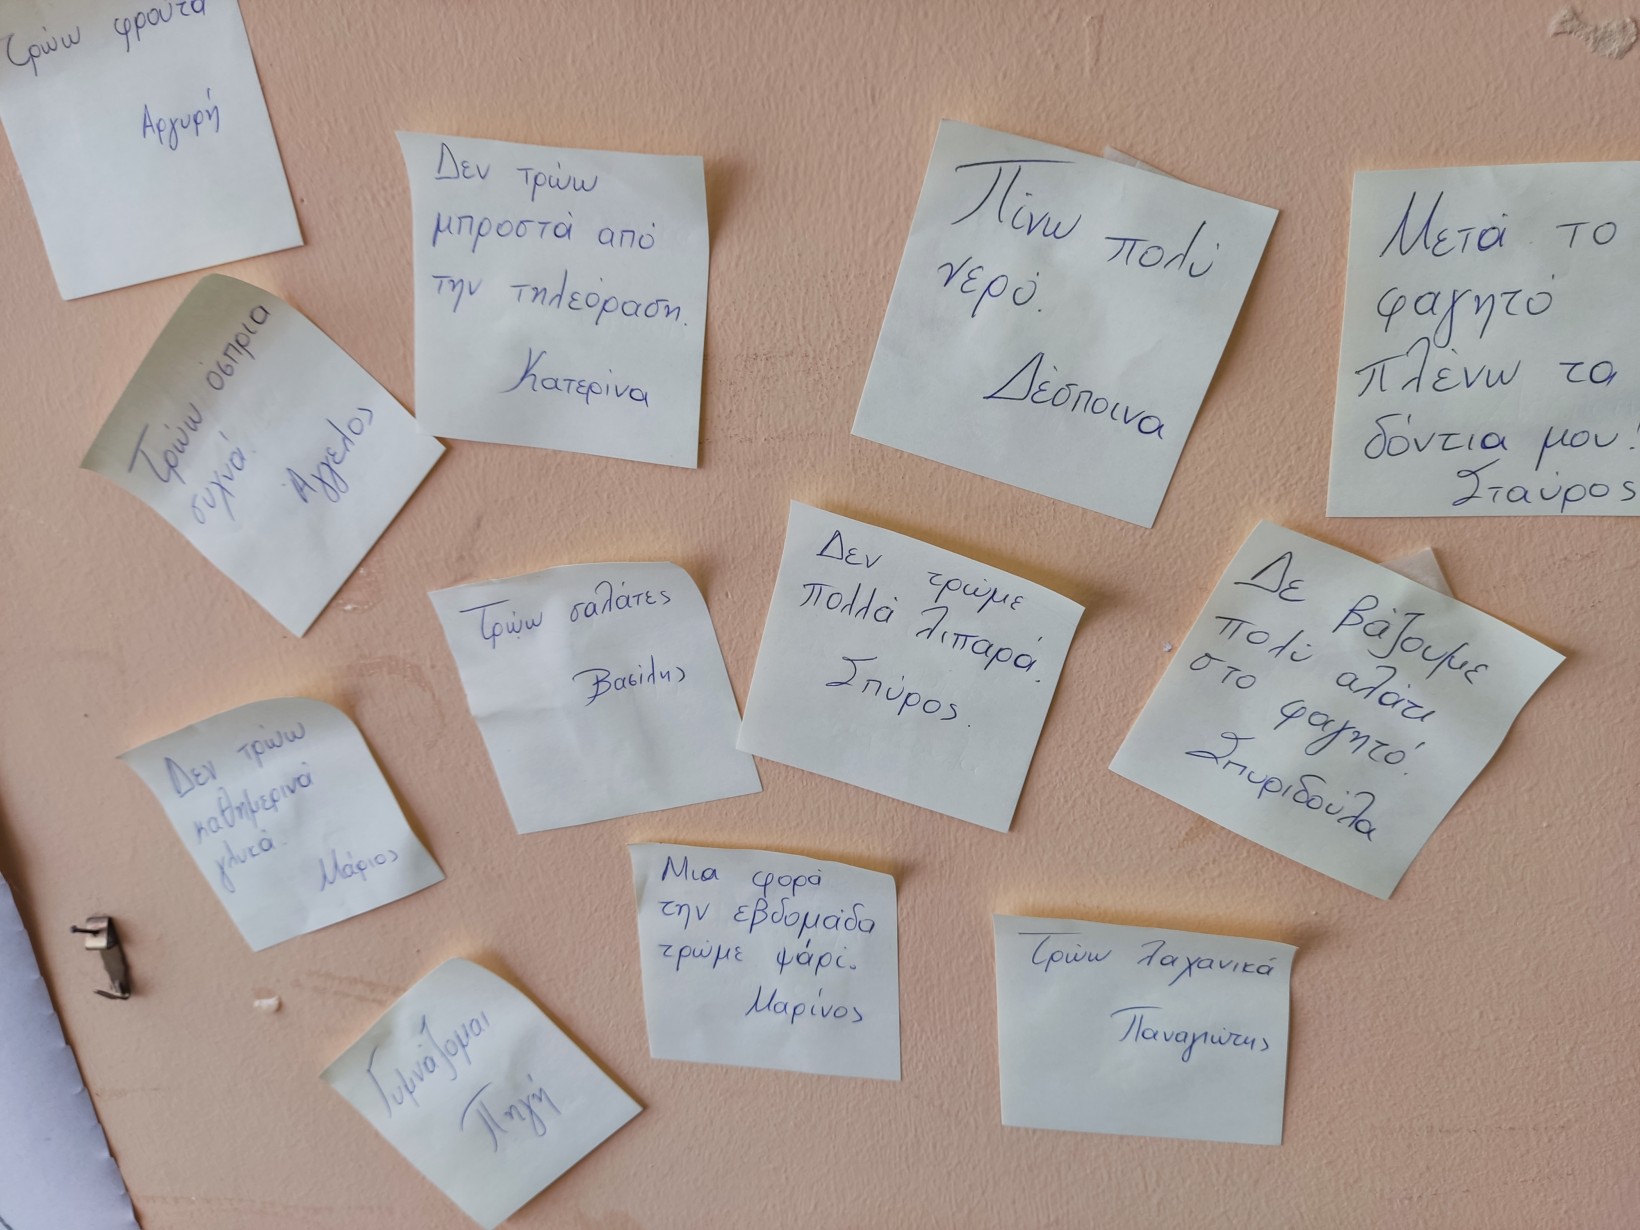 Τρώω φρούτα
Αργυρή
Δεν τρώω
μπροστά από
την τηλεόραση.
Κατερίνα
Πίνω πολύ
νερό.
Δέσποινα
Μετά το
φαγητό
πλένω τα
δόντια μου!
Σταύρος
Τρώω όσπρια
συχνά.
Άγγελος
Τρώω σαλάτες
Βασίλης
Δεν τρώμε
πολλά λιπαρά.
Σπύρος.
Δε βάζουμε
πολύ αλάτι
στο φαγητό.
Σπυριδούλα
Δεν τρώω
καθημερινά
γλυκά.
Μάριος
Μια φορά
την εβδομάδα
τρώμε ψάρι.
Μαρίνος
Τρώω λαχανικά
Παναγιώτης
Γυμνάζομαι
Πηγή